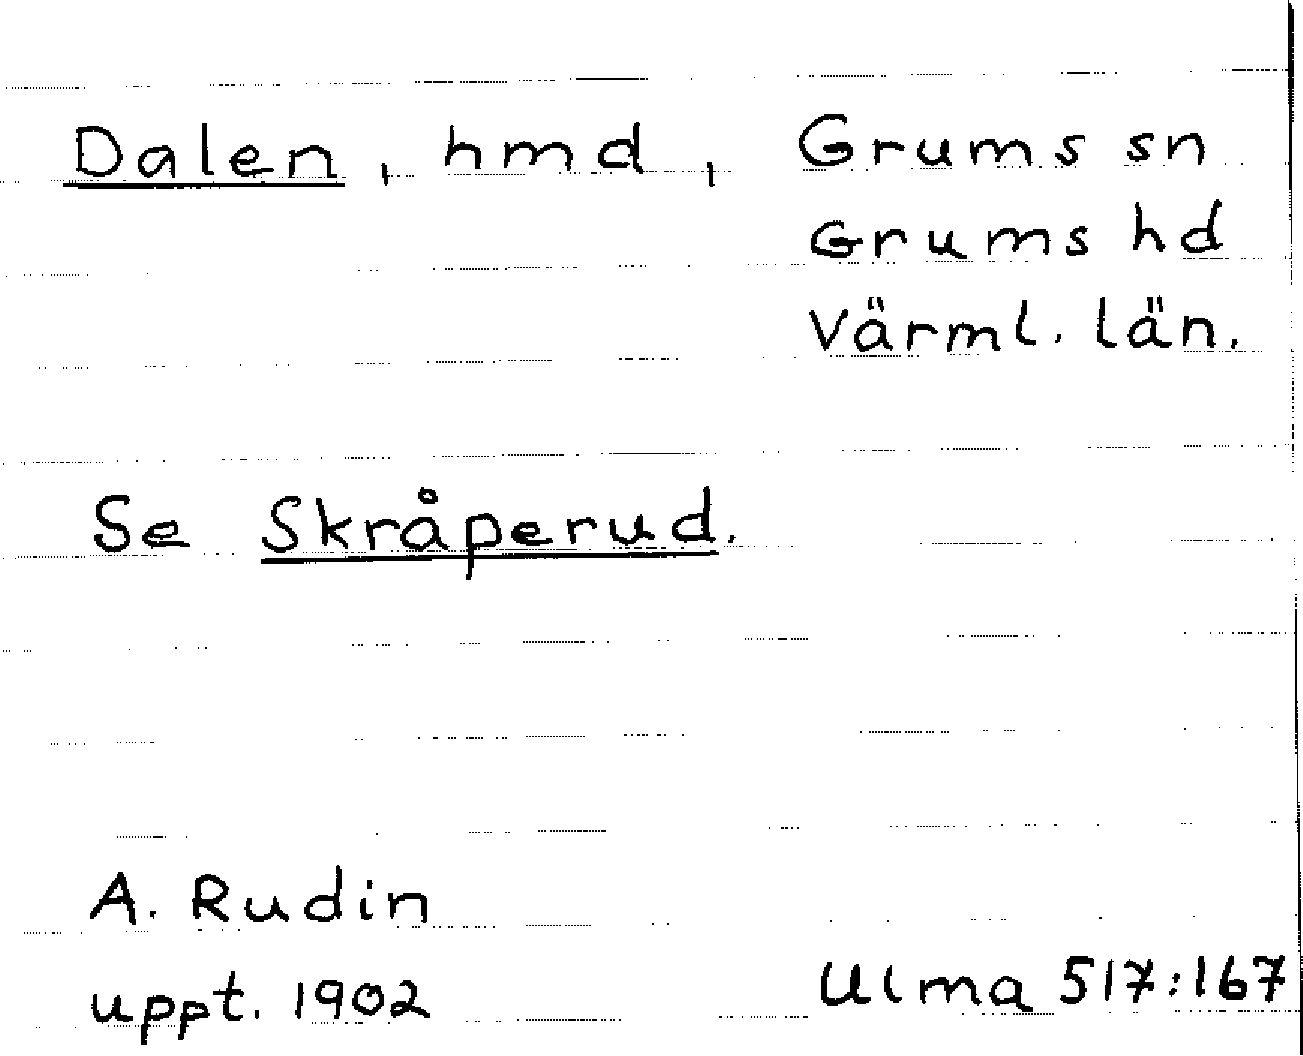 Dalen, hmd, Grums sn
Grums hd
Värml. län.
Se Skråperud.
A. Rudin
uppt. 1902
Ulma 517:167